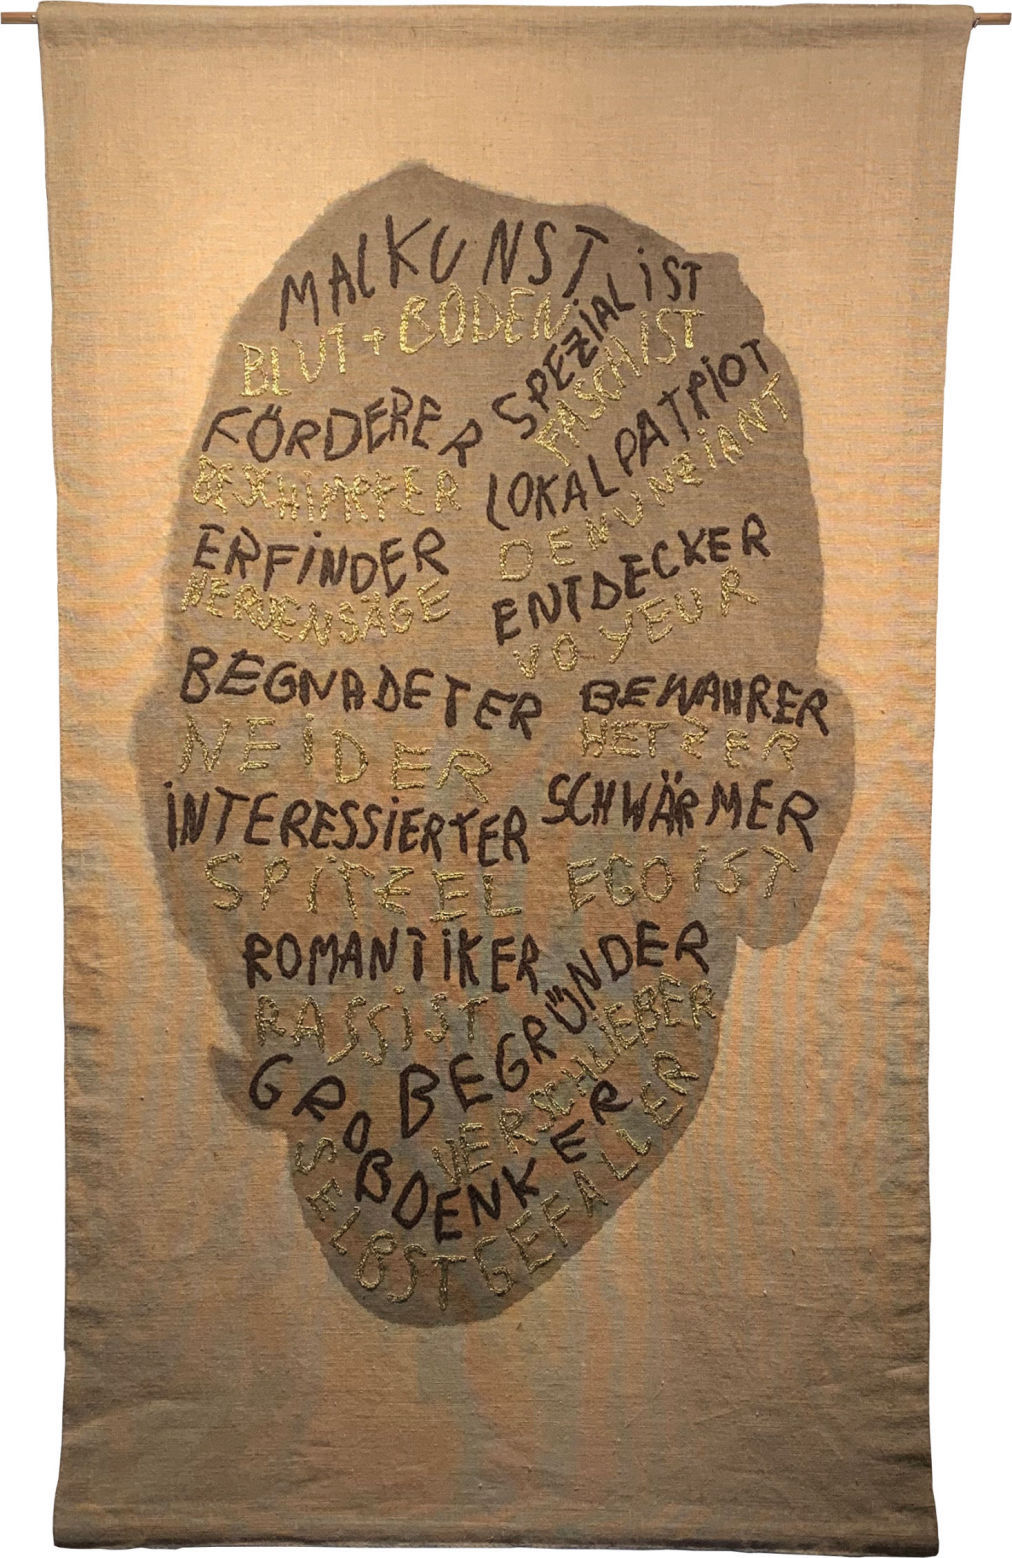 MALKUNST
SPEZIALiST
BLUT + BODEN
FASCHiST
FÖRDERER
LOKALPATRiOT
BESCHiMPFER
DENUNZiANT
ERFiNDER
ENTDECKER
NERVENSÄGE
VOYEUR
BEGNADETER
BEWAHRER
NEiDER
HETZER
iNTERESSiERTER
SCHWÄRMER
SPiTZEL
EGOiST
ROMANTiKER
BEGRÜNDER
RASSiST
VERSCHLIEBER
GROBDENKER
SELBSTGEFALLER